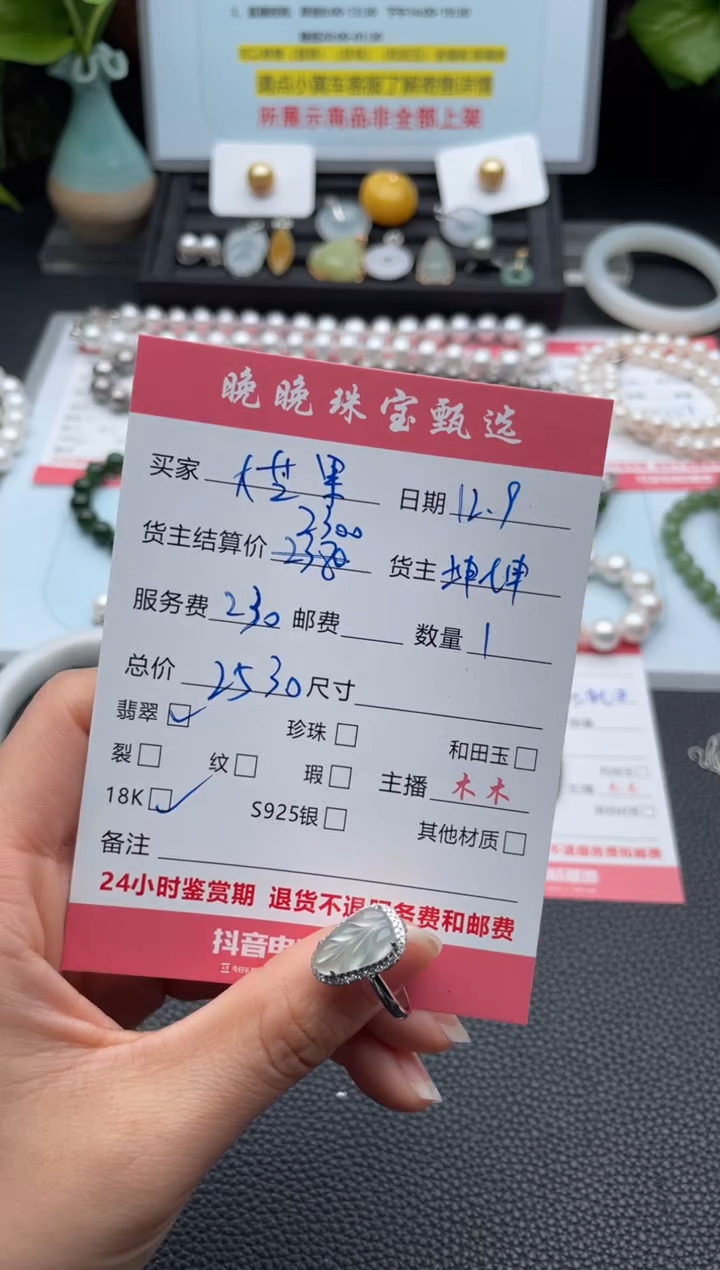 所展示商品非全部上架
晚晚珠宝甄选
买家 日期 12.9
2300
货主结算价 2380 货主
服务费 230 邮费 数量 1
总价 2530 尺寸
翡翠 珍珠 和田玉
裂 纹 瑕 主播 木木
18K S925银 其他材质
备注
24小时鉴赏期 退货不退服务费和邮费
抖音电